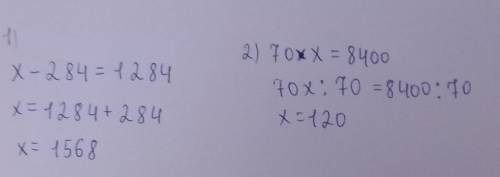 1)
x - 284 = 1284
x = 1284 + 284
x = 1568
2) 70 x x = 8400
70x : 70 = 8400 : 70
x = 120